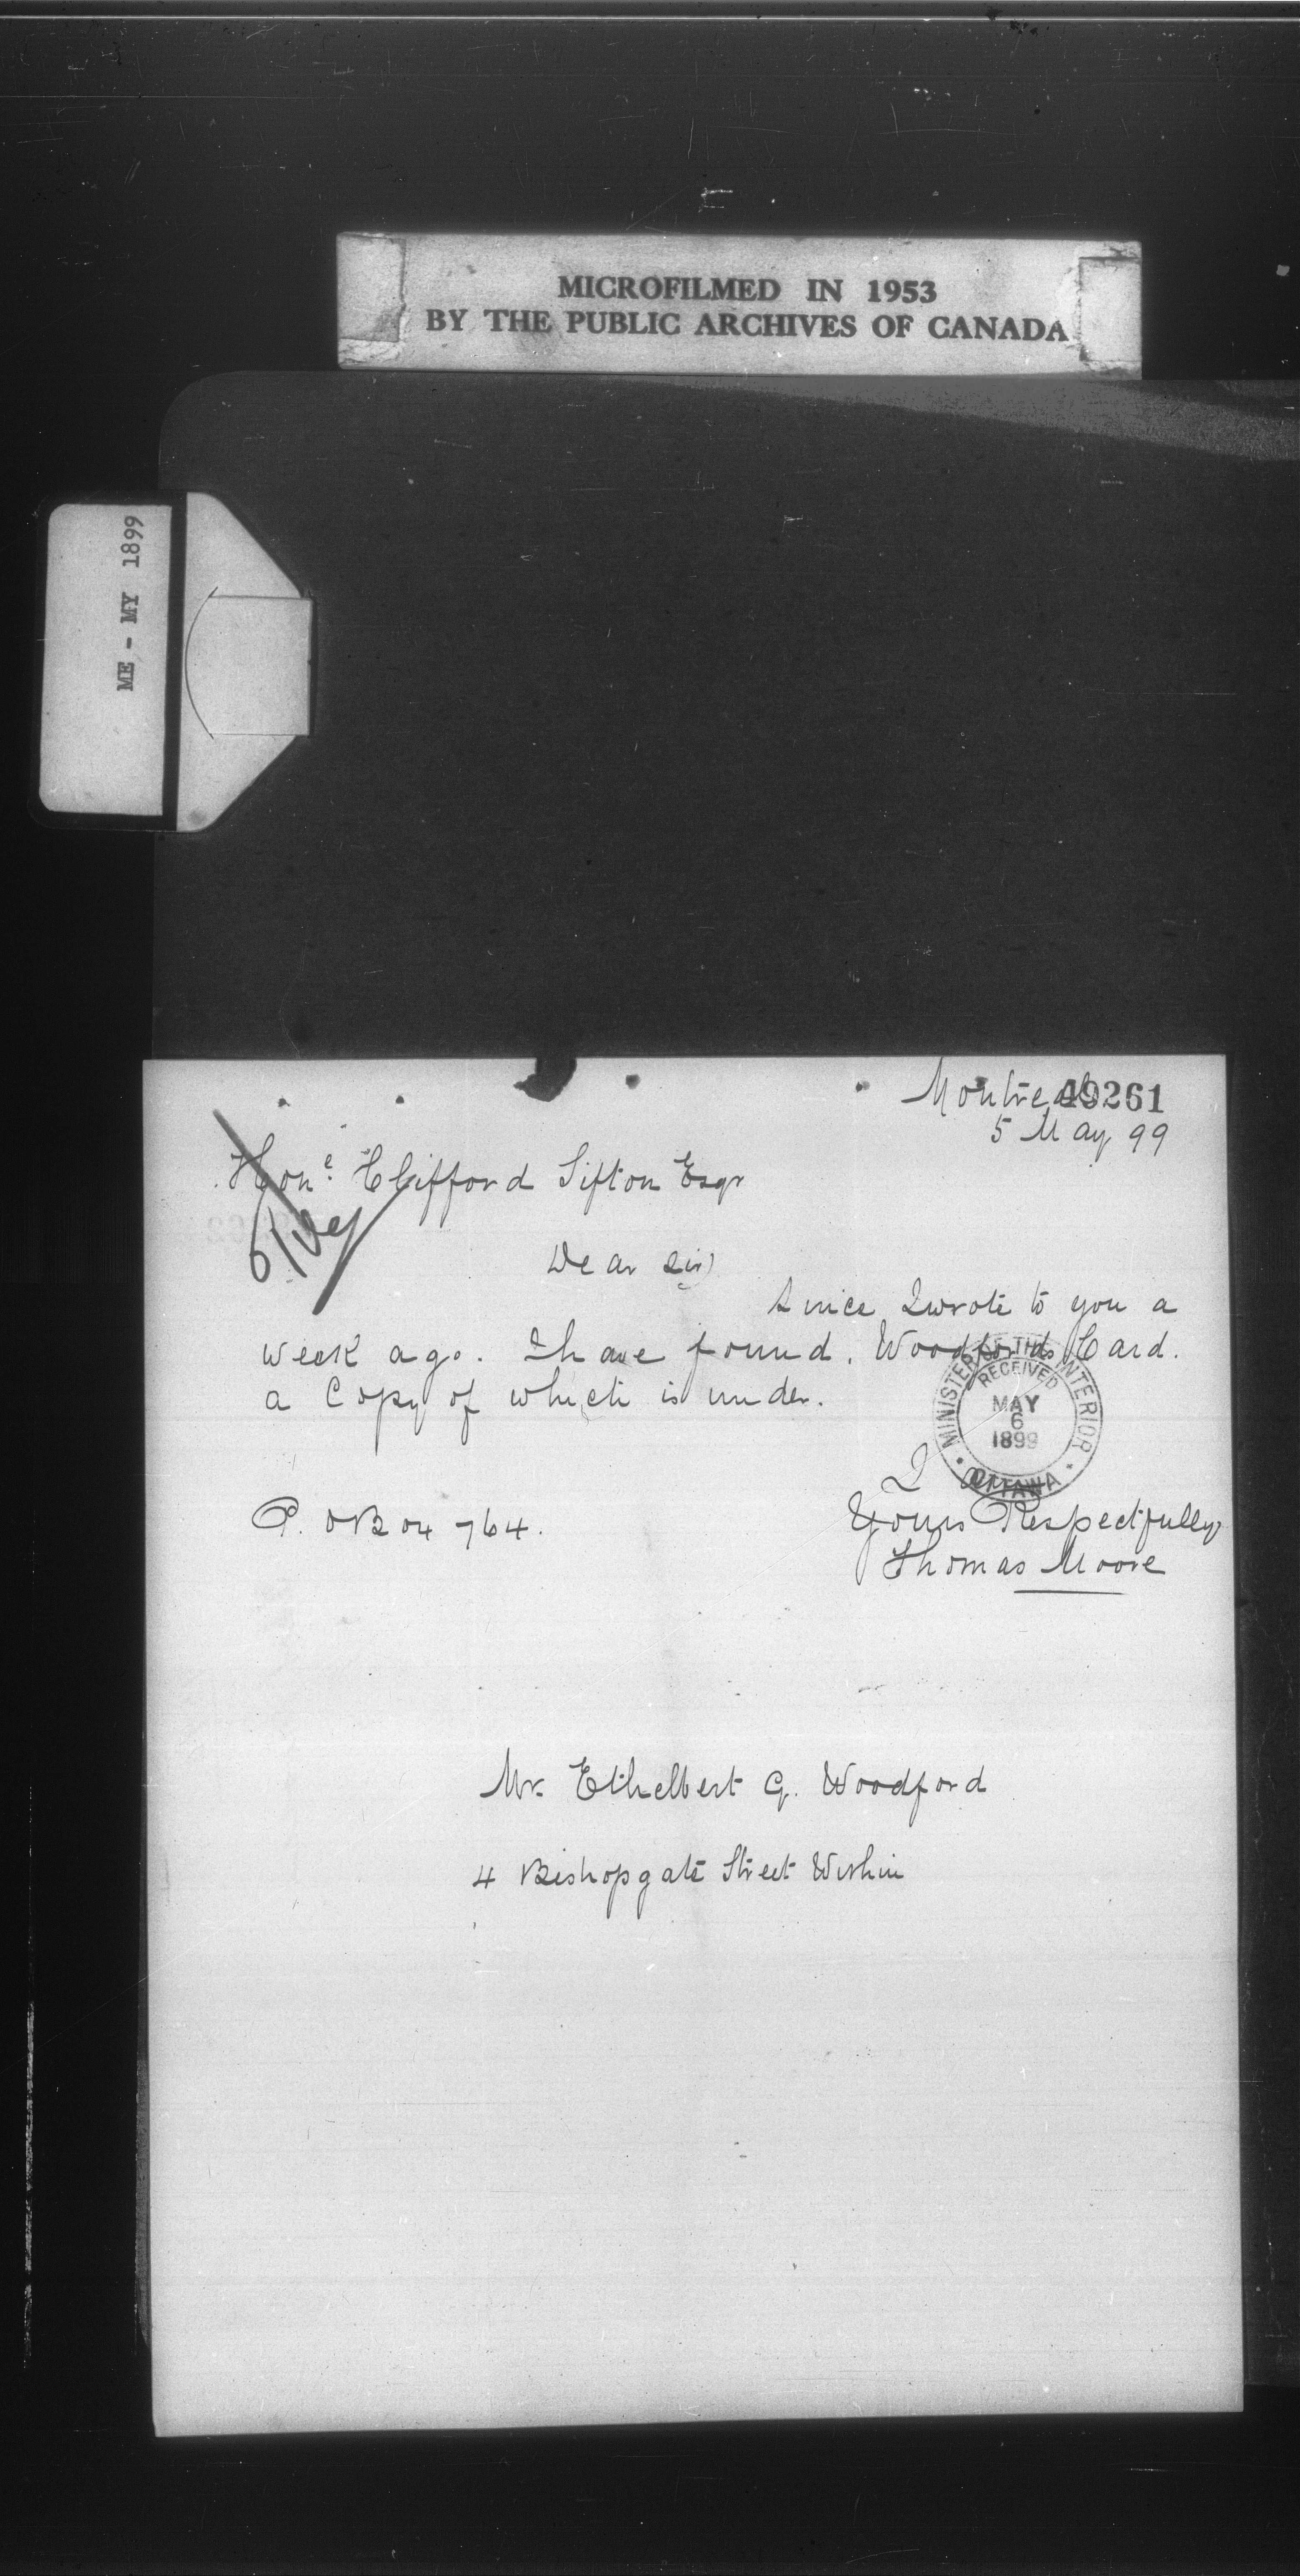 MICROFILMED IN 1953
BY THE PUBLIC ARCHIVES OF CANADA
ME - MY 1899
Montreal 49261
5 May 99
Hone. Clifford Sifton Esqr
Dear Sir
Since I wrote to you a
week ago. I have found. Woodfords Card.
a Copy of which is under.
MINISTER OF THE INTERIOR
RECEIVED
MAY
6
1899
OTTAWA
I am
P. O Box 764.
Yours Respectfully
Thomas Moore
Mr. Ethelbert G. Woodford
4 Bishopgate Street Within